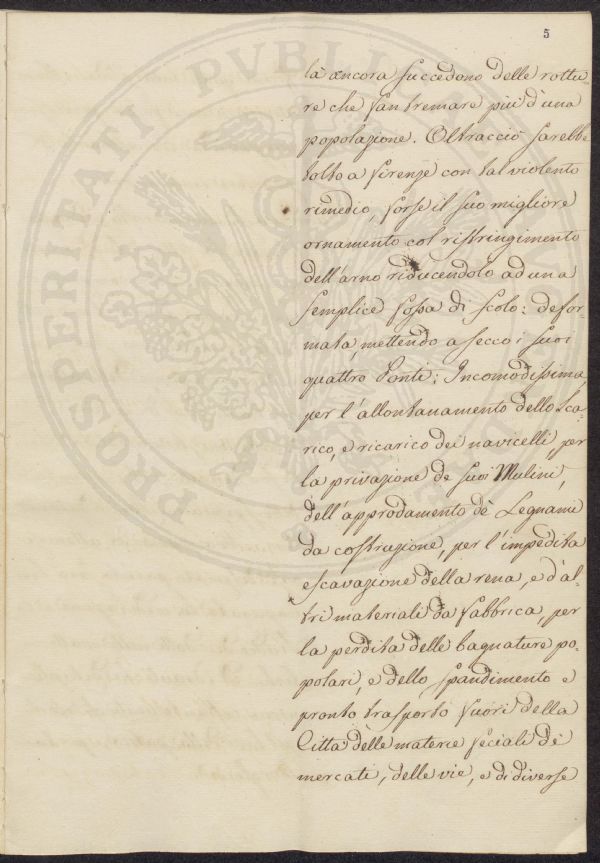 5
là ancora succedono delle rottu
re che fan tremare più d'una
popolazione. Oltracciò sarebbe
tolto a Firenze con tal violento
rimedio, forse il suo migliore
ornamento col ristringimento
dell'arno riducendolo ad una
semplice fossa di scolo: defor-
mata, mettendo a secco i suoi
quattro Ponti; Incomodissima
per l'allontanamento dello Sca-
rico, e ricarico dei navicelli, per
la privazione de suoi Mulini,
dell'approdamento de Legnami
da costruzione, per l'impedita
escavazione della rena, e d'al-
tri materiali da fabbrica, per
la perdita delle bagnature po-
polari, e dello spandimento e
pronto trasporto fuori della
Città delle materie feciali de
mercati, delle vie, e di diverse
PROSPERITATI PVBLI